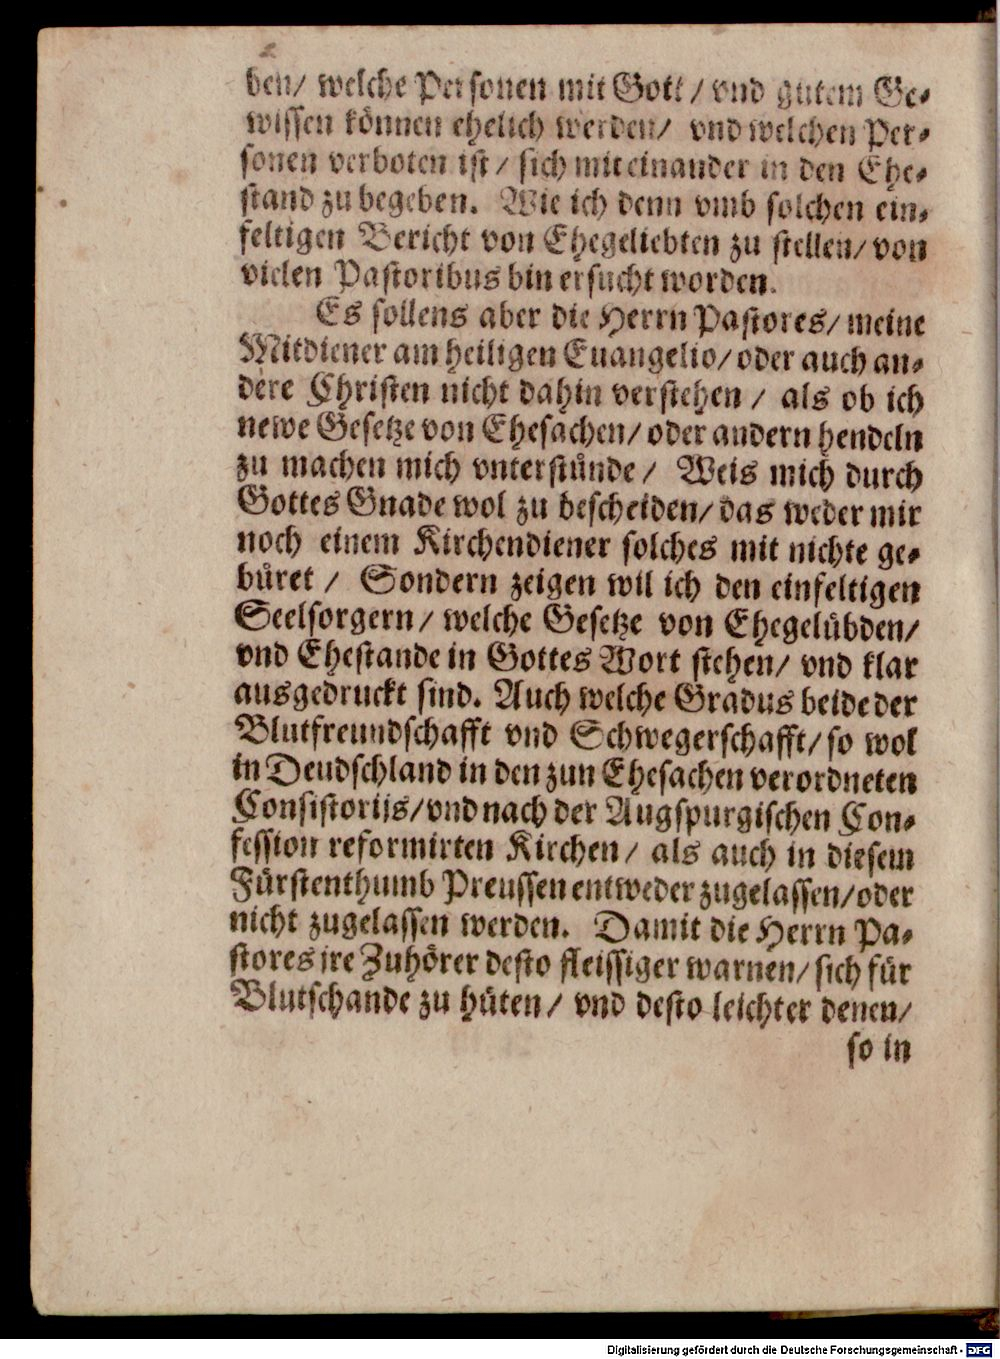 ben/ welche Personen mit Gott/ vnd gutem Ge-
wissen können ehelich werden/ vnd welchen Per-
sonen verboten ist/ sich miteinander in den Ehe-
stand zu begeben. Wie ich denn vmb solchen ein-
feltigen Bericht von Ehegeliebten zu stellen/ von
vielen Pastoribus bin ersucht worden.
Es sollens aber die Herrn Pastores/ meine
Mitdiener am heiligen Euangelio/ oder auch an-
dere Christen nicht dahin verstehen/ als ob ich
newe Gesetze von Ehesachen/ oder andern hendeln
zu machen mich vnterstünde/ Weis mich durch
Gottes Gnade wol zu bescheiden/ das weder mir
noch einem Kirchendiener solches mit nichte ge-
büret/ Sondern zeigen wil ich den einfeltigen
Seelsorgern/ welche Gesetze von Ehegelübden/
vnd Ehestande in Gottes Wort stehen/ vnd klar
ausgedruckt sind. Auch welche Gradus beide der
Blutfreundschafft vnd Schwegerschafft/ so wol
in Deudschland in den zun Ehesachen verordneten
Consistorijs/ vnd nach der Augspurgischen Con-
fession reformirten Kirchen/ als auch in diesem
Fürstenthumb Preussen entweder zugelassen/ oder
nicht zugelassen werden. Damit die Herrn Pa-
stores ire Zuhörer desto fleissiger warnen/ sich für
Blutschande zu hüten/ vnd desto leichter denen/
so in
Digitalisierung gefördert durch die Deutsche Forschungsgemeinschaft - DFG